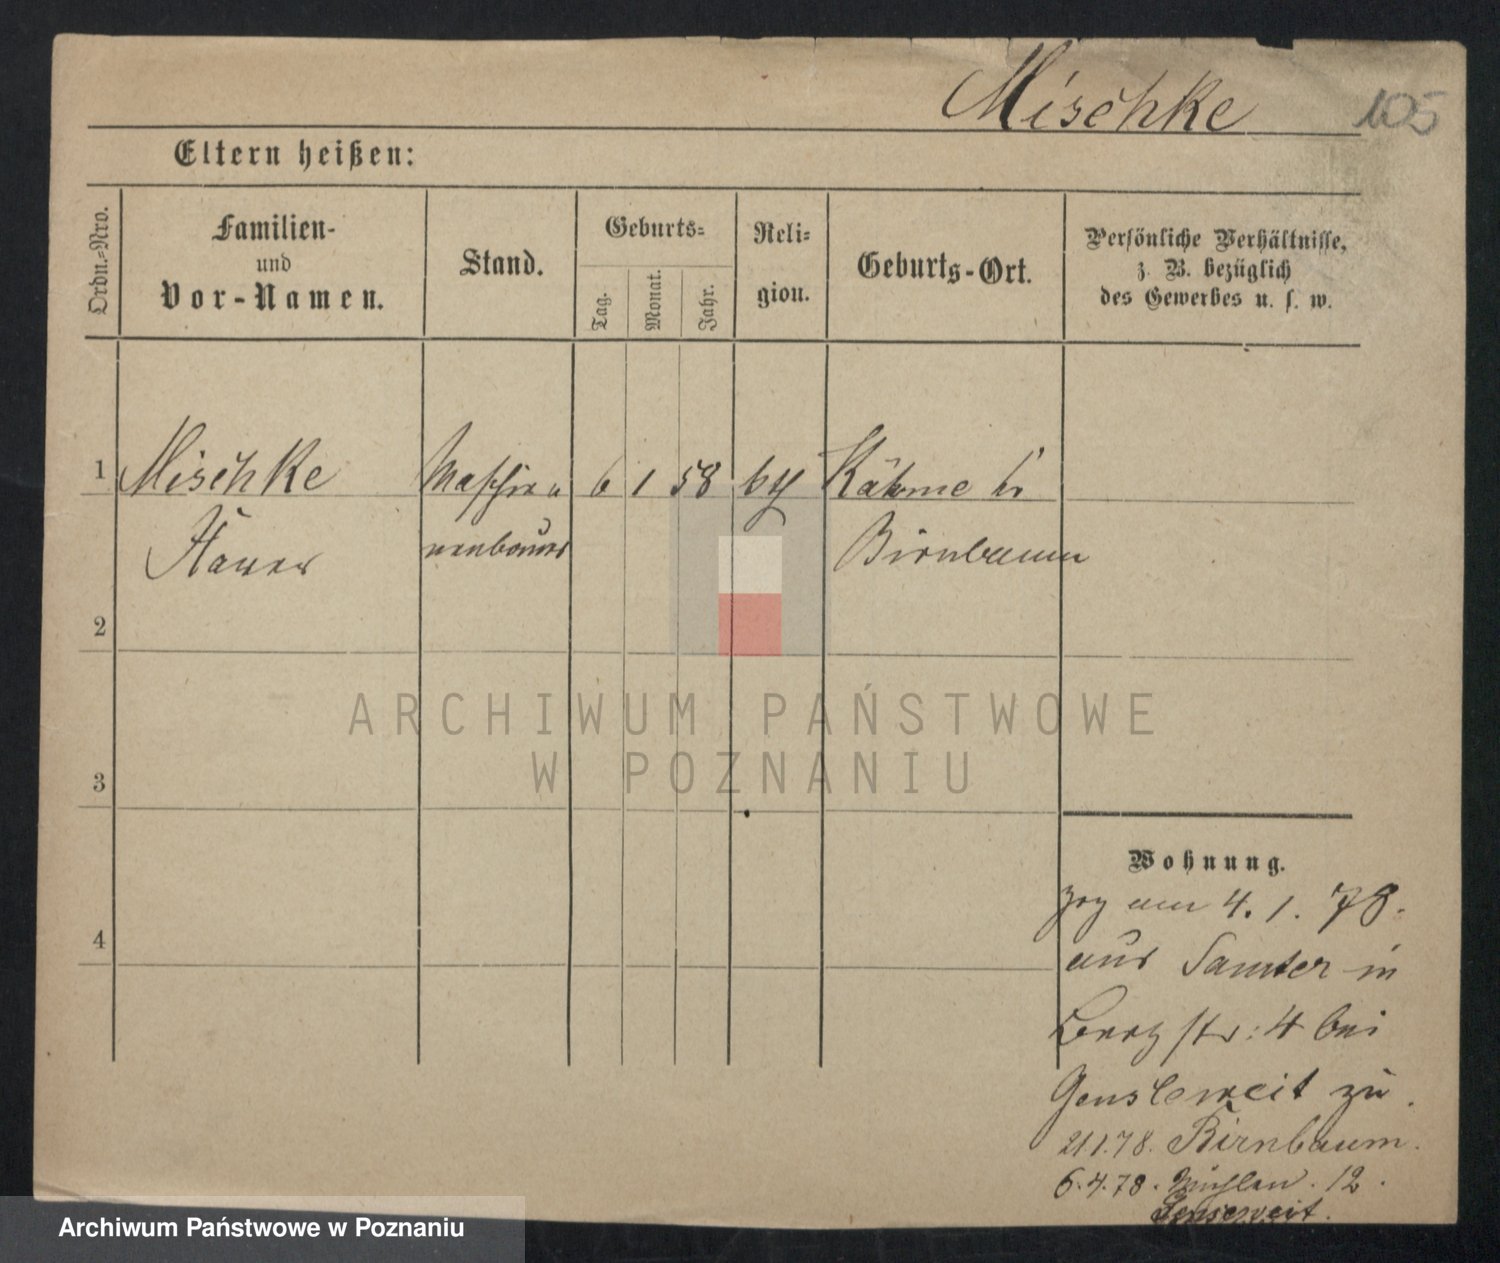 Mischke 105
Eltern heißen:
Ordn.-Nro.
Familien-
und
Vor-Namen.
Stand.
Geburts-
Tag.
Monat.
Jahr.
Reli-
gion.
Geburts-Ort.
Persönliche Verhältnisse,
z. B. bezüglich
des Gewerbes u. s. w.
1 Mischke Maschin 6 1 58 Kähme b
nenbauer Birnbaum
2
ARCHIWUM PAŃSTWOWE
W POZNANIU
3
Wohnung.
zog am 4. 1. 78.
aus Samter in
Berg str: 4 bei
zu
4
21 1. 78. Birnbaum.
6. 4. 78. Mühlen. 12.
Archiwum Państwowe w Poznaniu